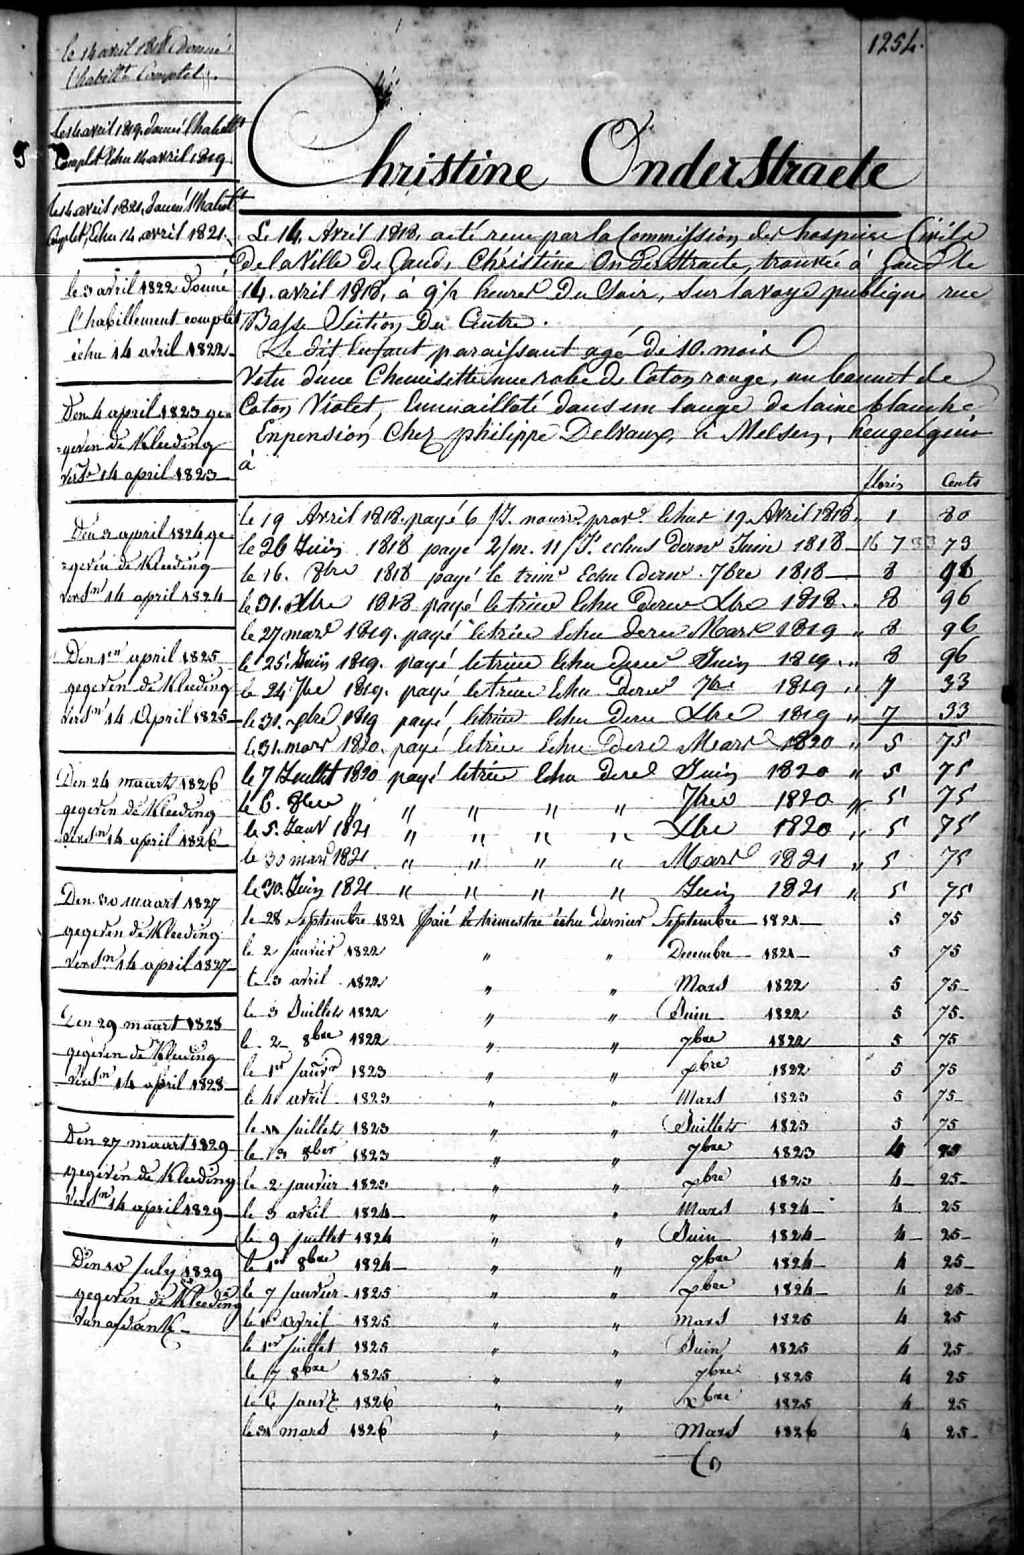 1254.
le 14 avril 1818 donné
l'habillt Complet
Le 14 avril 1819. donné l'habillt
Complet Echu 14 avril 1819
le 14 avril 1821. Donné l'habillt
Complet, Echu 14 avril 1821.
le 3 avril 1822 Donné
l'habillement complet
échu 14 avril 1822
Den 4 april 1823 ge-
geven de Kleeding
versn 14 april 1823
Den 2 april 1824 ge-
geven de Kleeding
versn 14 april 1824
Den 1en april 1825
gegeven de Kleeding
versn 14 April 1825
Den 24 maart 1826
gegeven de Kleeding
versn 14 april 1826
Den 30 maart 1827
gegeven de Kleeding
versn 14 april 1827
Den 29 maart 1828
gegeven de Kleeding
versn 14 april 1828
Den 27 maart 1829
gegeven de Kleeding
versn 14 april 1829
Den 10 july 1829
gegeven de Kleeding
van afdank
Christine Onderstraete
Le 14. Avril 1818, a été reçue par la Commission des hospices Civils
de la Ville de Gand, Christine Onderstraete, trouvée à Gand le
14. avril 1818, à 9 1/2 heures du Soir, Sur la voye publique rue
Basse Section du Centre.
Le dit Enfant paraissant agé de 10. mois
Vetu d'une Chemisette une robe de Coton rouge, un bonnet de
Coton Violet, Emmailloté dans un lange de laine blanche
En pension Chez philippe Delvaux, à Melsen,
à
florins Cents
le 19 Avril 1818. payé 6 Js. nourre. provre. Echus 19 Avril 1818 " 1 80
le 26 Juin 1818 payé 2/m. 11/Js echus derner Juin 1818 16 73 73
le 16. 8bre 1818 payé le trimre Echu derner 7bre 1818 8 96
le 31. Xbre 1818 payé le trim Echu derner Xbre 1818 " 8 96
le 27 mars 1819. payé le trim Echu derner Mars 1819 " 8 96
le 25 Juin 1819. payé le trim Echu derner Juin 1819 " 8 96
le 24 7bre 1819. payé le trim Echu derner 7bre 1819 " 7 33
le 31. Xbre 1819 payé le trim Echu derner Xbre 1819 " 7 33
le 31. mars 1820. payé le trim Echu derner Mars 1820 " 5 75
le 7 Juillet 1820 payé le trim Echu derner Juin 1820 " 5 75
le 6. 8bre " " " " " 7bre 1820 " 5 75
le 5. Janv 1821 " " " " Xbre 1820 " 5 75
le 30 mars 1821 " " " " Mars 1821 " 5 75
le 30. Juin 1821 " " " " Juin 1821 " 5 75
le 28 Septembre 1821 Paié le trimestre échu dernier Septembre 1821 5 75
le 2 janvier 1822 " " Decembre 1821 5 75
le 3 avril 1822 " " Mars 1822 5 75
le 3 Juillet 1822 " " Juin 1822 5 75
le 2 8bre 1822 " " 7bre 1822 5 75
le 1er janvr 1823 " " Xbre 1822 5 75
le 4 avril 1823 " " Mars 1823 5 75
le 11 juillet 1823 " " Juillet 1823 5 75
le 13 8ber 1823 " " 7bre 1823 4 25
le 2 janvier 1823 " " Xbre 1823 4 25
le 3 avril 1824 " " Mars 1824 4 25
le 9 juillet 1824 " " Juin 1824 4 25
le 1er 8bre 1824 " " 7bre 1824 4 25
le 7 janvier 1825 " " Xbre 1824 4 25
le avril 1825 " " mars 1825 4 25
le 1er juillet 1825 " " Juin 1825 4 25
le 7 8bre 1825 " " 7bre 1825 4 25
le 6 janvr 1826 " " Xbre 1825 4 25
le 31 mars 1826 " " Mars 1826 4 25